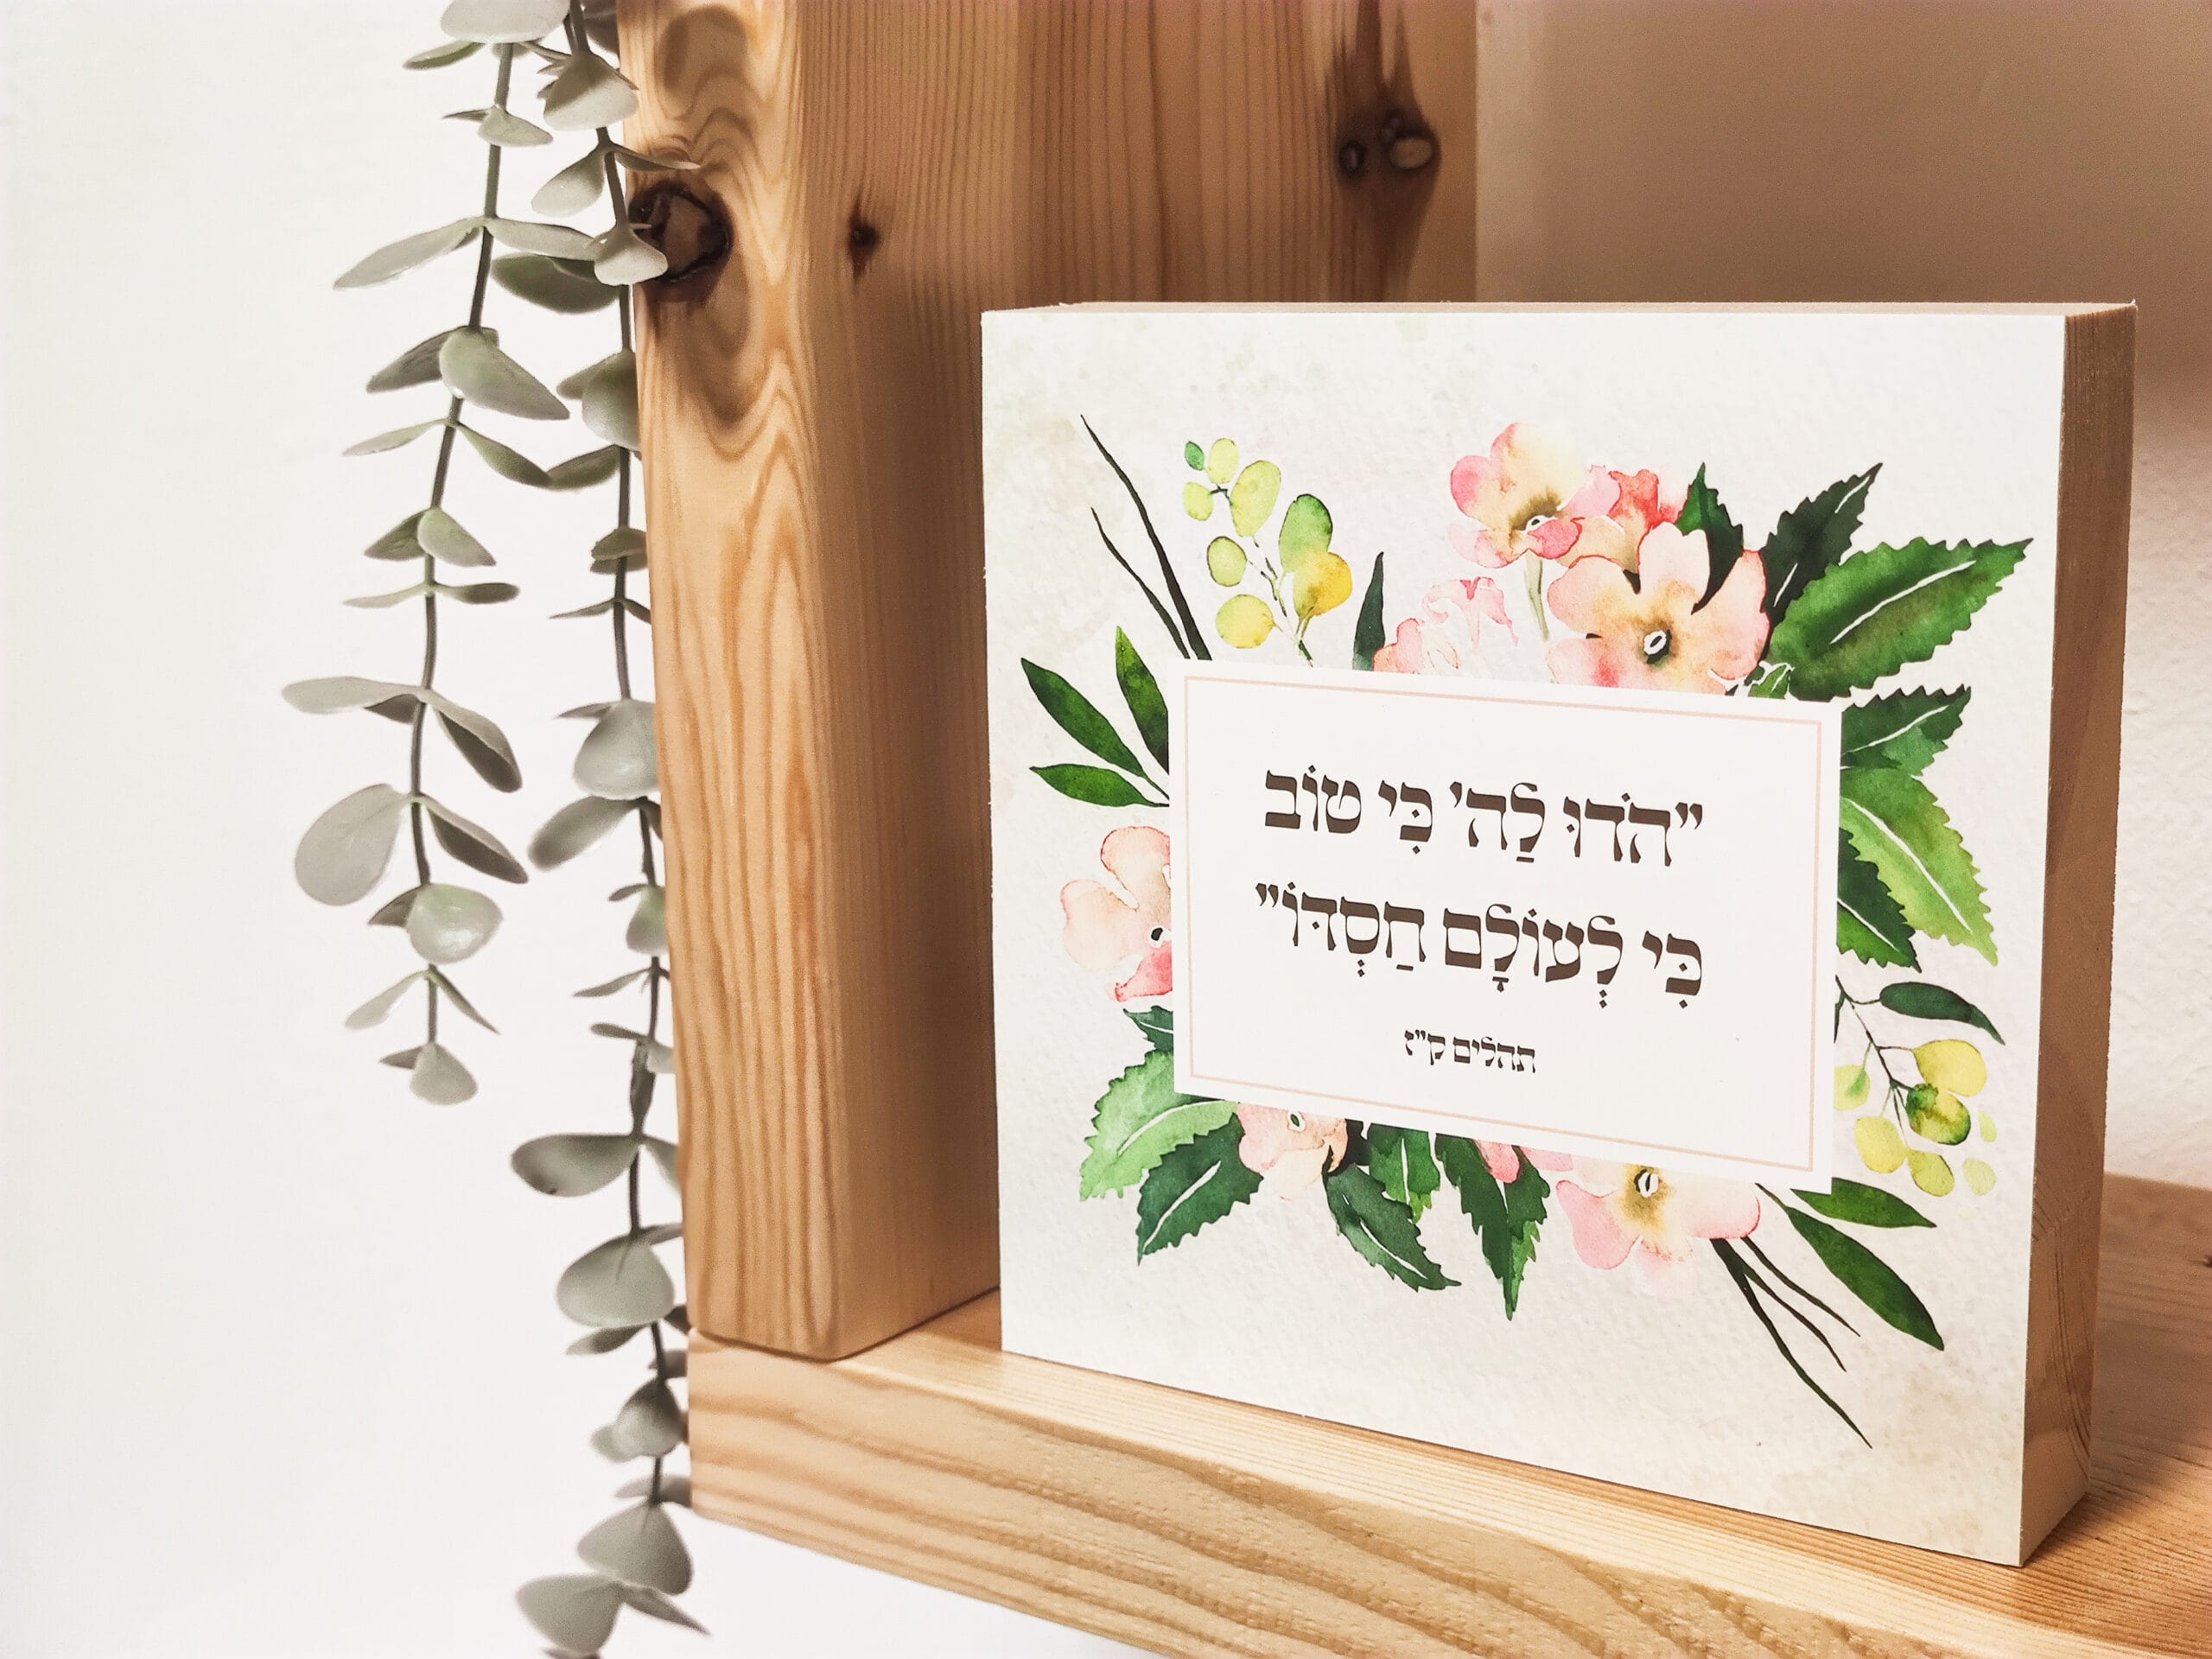 "הֹדוּ לַה' כִּי טוֹב
כִּי לְעוֹלָם חַסְדּוֹ"
תהלים ק"ז